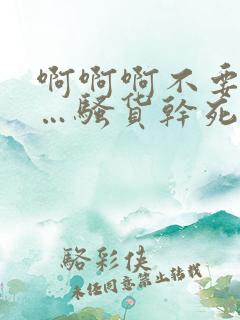 啊啊啊不要
…騷货幹死
駱彩侠
未经同意禁止转载